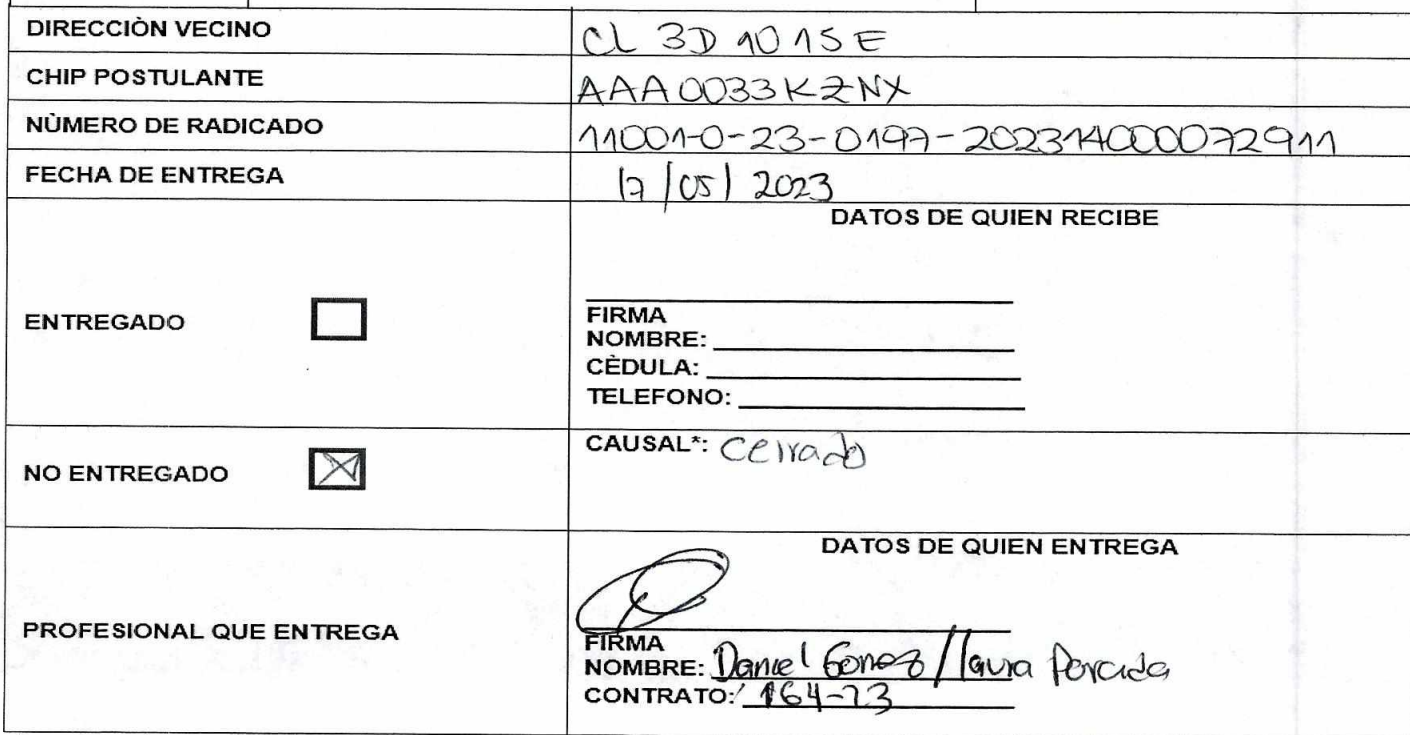 DIRECCIÒN VECINO CL 3D 10 15 E
CHIP POSTULANTE AAA0033KZNX
NÙMERO DE RADICADO 11001-0-23-0197-202314000072911
FECHA DE ENTREGA 17/05/2023
DATOS DE QUIEN RECIBE
ENTREGADO
FIRMA
NOMBRE:
CÈDULA:
TELEFONO:
NO ENTREGADO
CAUSAL*: Cerrado
DATOS DE QUIEN ENTREGA
PROFESIONAL QUE ENTREGA
FIRMA
NOMBRE: Daniel Gomez / laura
CONTRATO: 164-23